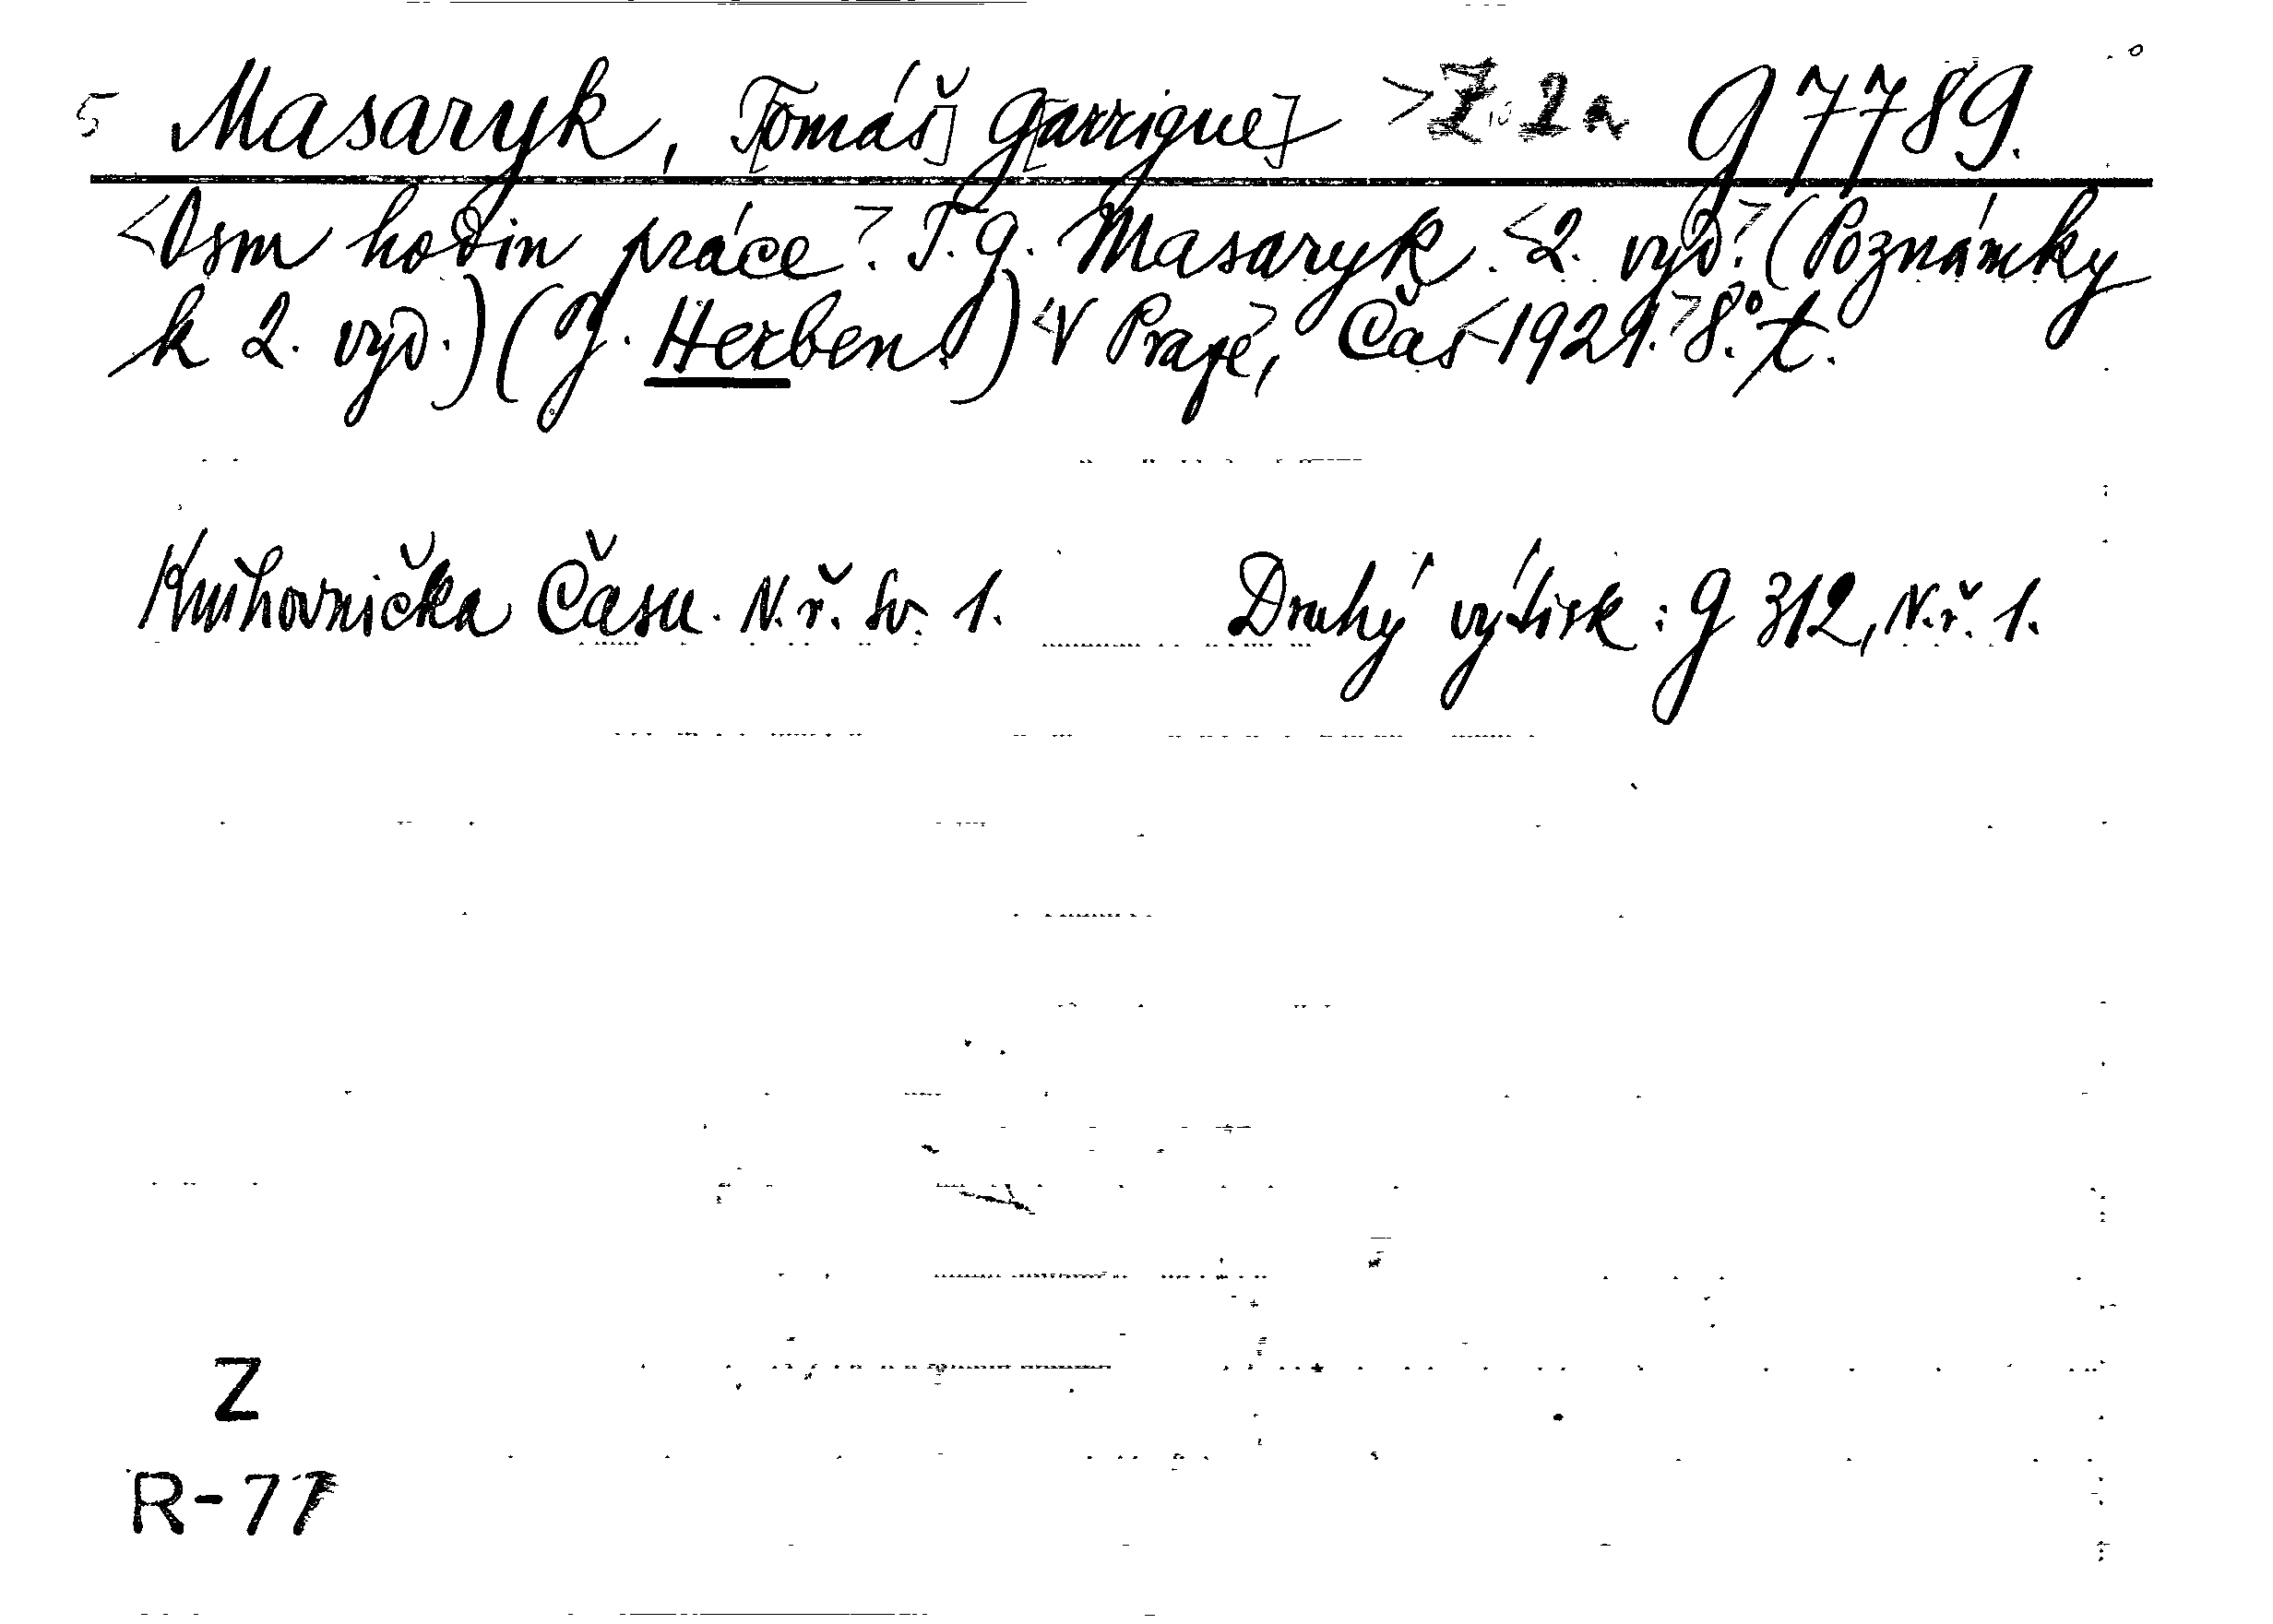 5 Masaryk, T[omáš] G[arrigue] >Z 2a G 7789.
<Osm hodin práce>. T. G. Masaryk. <2. vyd.> (Poznámky
k 2. vyd.) (J. Herben.) <V Praze>, Čas <1921.> 8°. t.
Knihovnička Času. N. ř. Sv. 1. Druhý výtisk: G 312, N. ř. 1.
Z
R-77